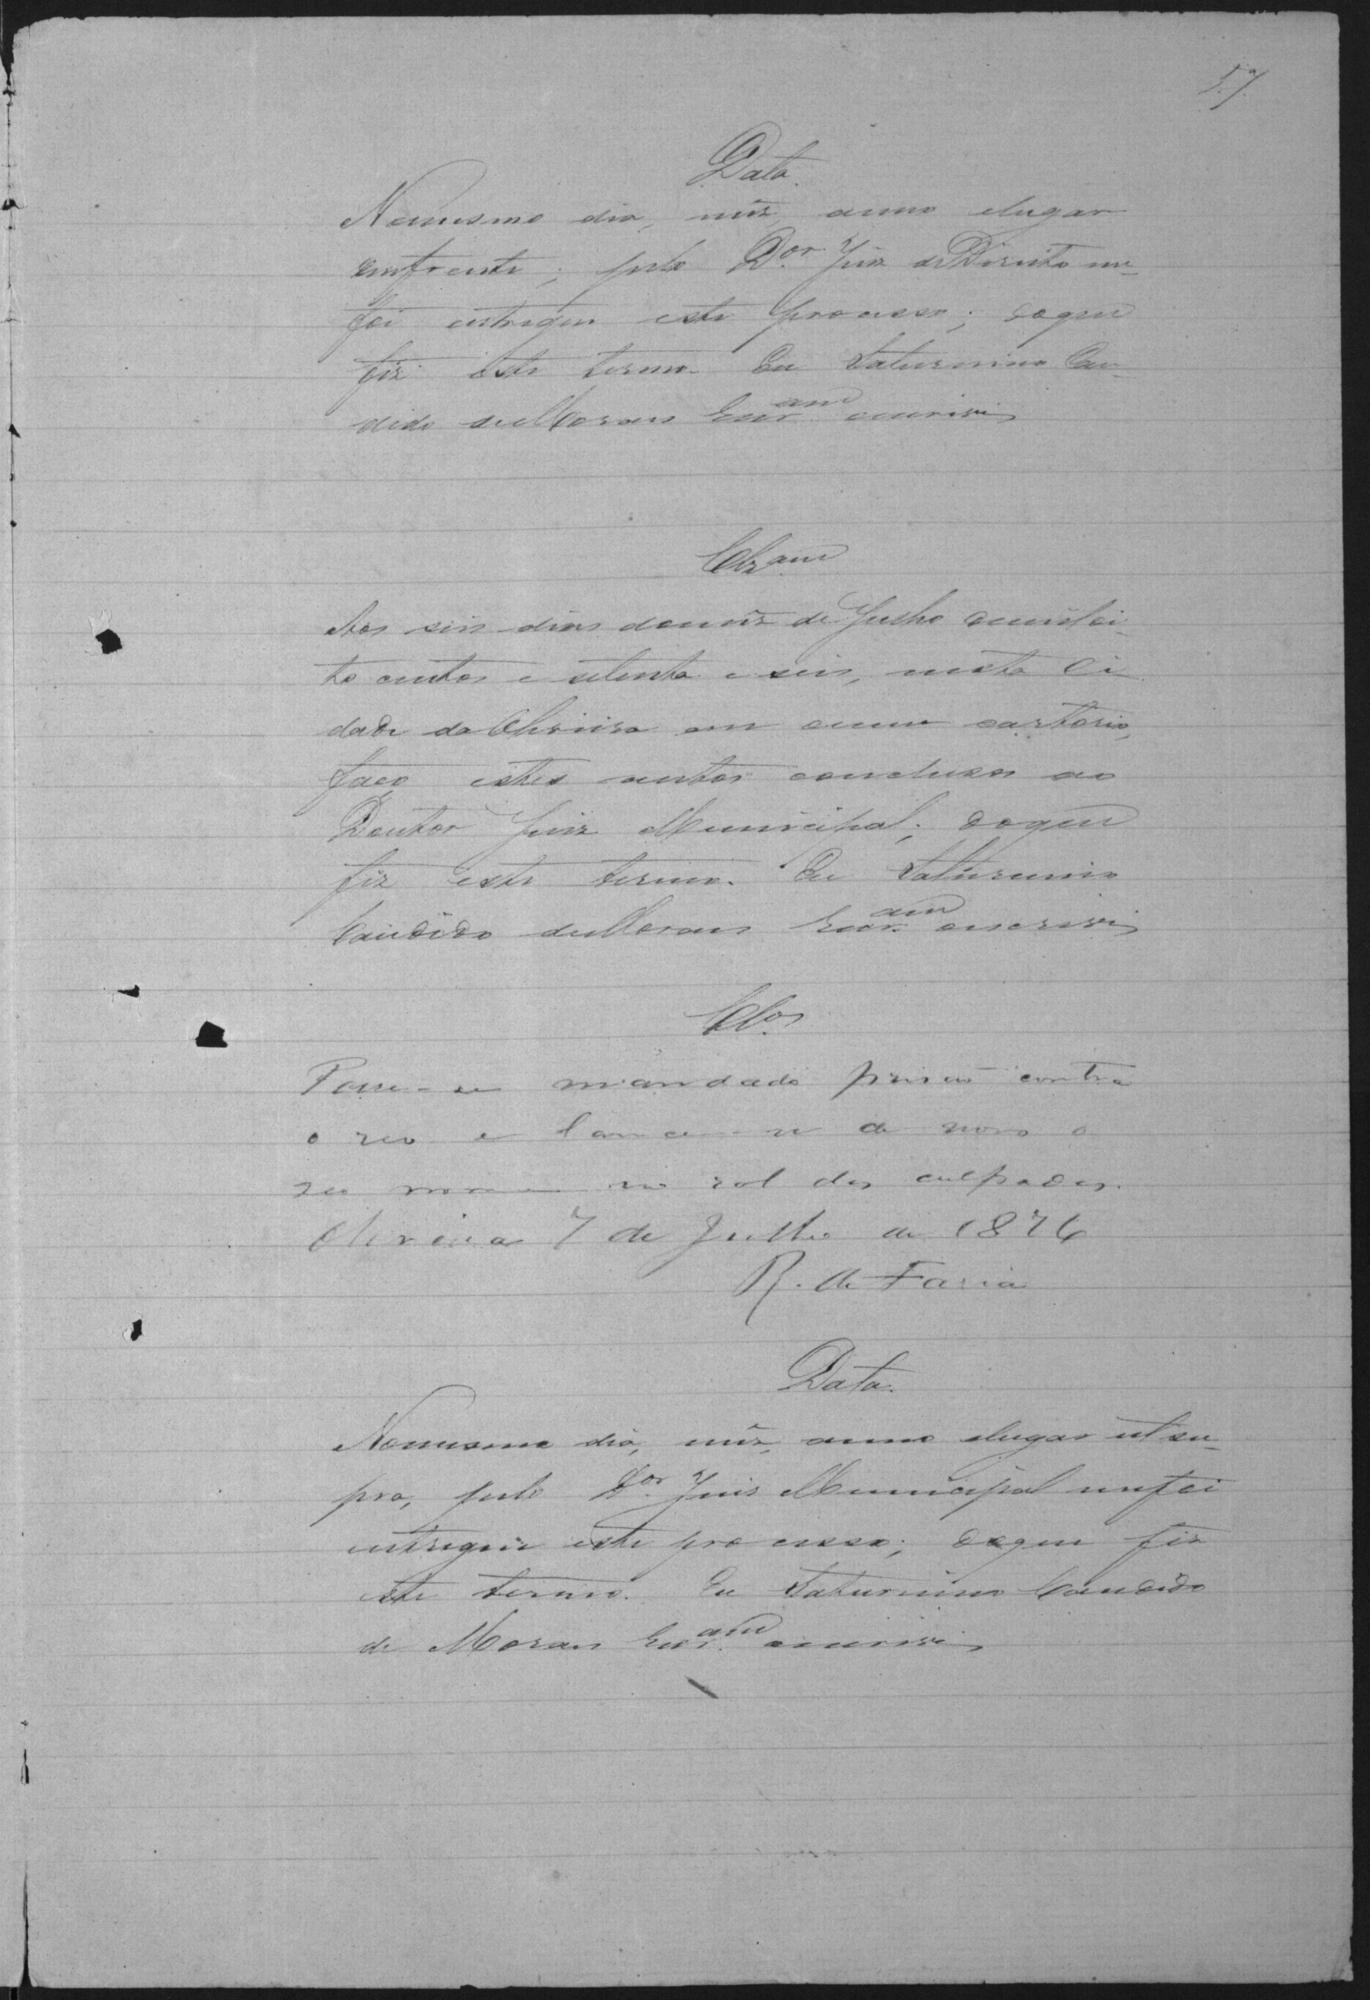 57.
Data.
No mesmo dia, mêz, anno e lugar
emfrente; pelo Dor. Juiz de Direito me
foi entregue este processo; do que
fiz este termo. Eu Saturnino Can-
dido de Moraes Escram escrivi
Clzam
Aos seis dias do mêz de Julho de mil oi-
to centos e setenta e seis, nesta Ci-
dade da Oliveira em o meu cartorio,
faço estes autos conclusos ao
Doutor Juiz Municipal; do que
fiz este termo. Eu Saturnino
Candido de Moraes Escr.am o escrivi
Clos
Passe-se mandado prisão contra
o reo e lance-se de novo o
seu nome no rol dos culpados.
Oliveira 7 de Julho de 1876
R. de Faria
Data.
No mesmo dia, mêz, anno e lugar ut su-
pra, pelo Dor. Juis Municipal me foi
entregue este processo; do que fiz
este termo. Eu Saturnino Candido
de Moraes Escr.am o escrivi